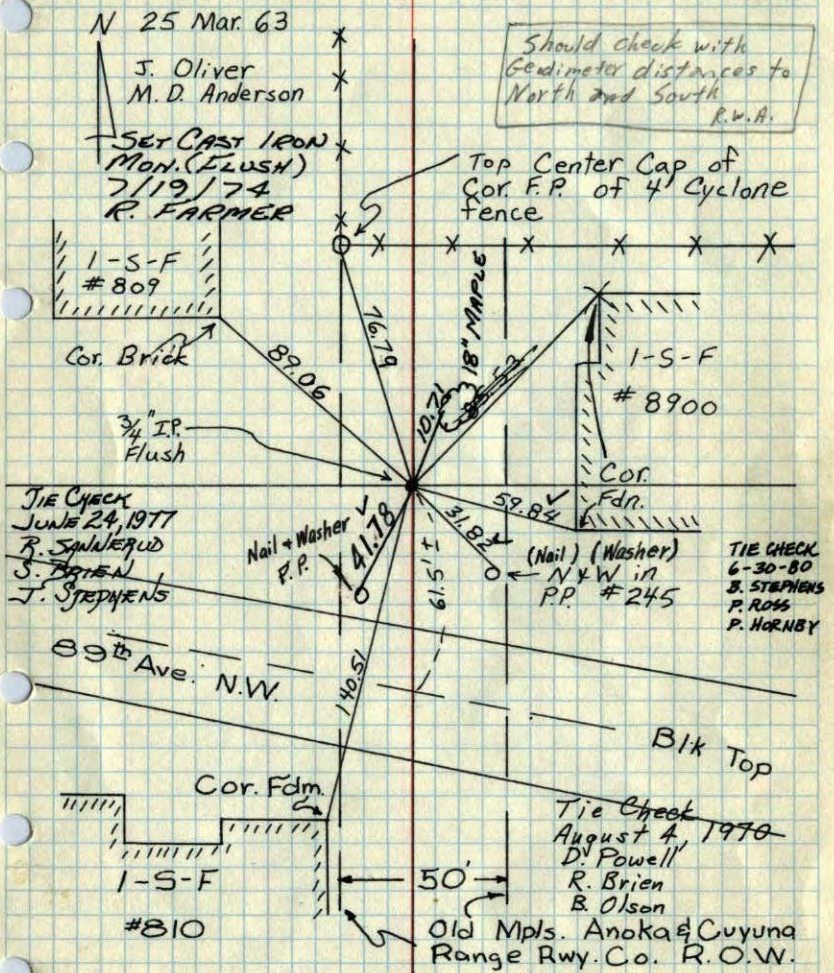 N 25 Mar. 63
J. Oliver
M.D. Anderson
SET CAST IRON
MON. (FLUSH)
7/19/74
R. FARMER
Should check with
Geodimeter distances to
North and South
R.W.A.
Top Center Cap of
Cor. F.P. of 4' Cyclone
fence
1-S-F
#809
Cor. Brick
89.06
76.79
10.71
18" MAPLE
1-S-F
#8900
Cor.
Fdn.
3/4" I.P.
Flush
TIE CHECK
JUNE 24, 1977
R. SANNERUD
S. BRIEN
J. STEPHENS
Nail + Washer ✓
P.P.
41.78
61.5' ±
31.82 ✓
59.84 ✓
(Nail) (Washer)
N & W in
P.P. #245
TIE CHECK
6-30-80
B. STEPHENS
P. ROSS
P. HORNBY
89th Ave. N.W.
140.51
Blk Top
Cor. Fdm.
1-S-F
#810
50'
Tie Check
August 4, 1970
D. Powell
R. Brien
B. Olson
Old Mpls. Anoka & Cuyuna
Range Rwy. Co. R.O.W.